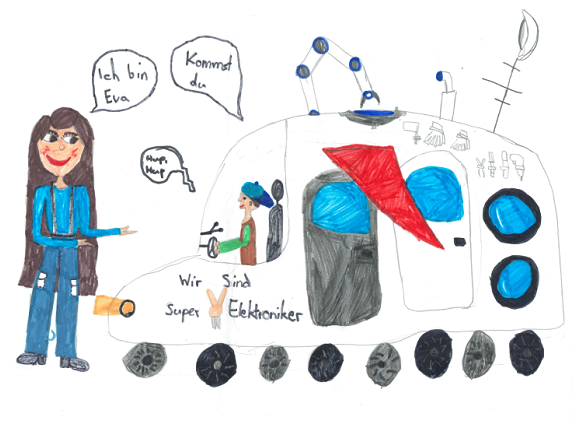 Ich bin
Eva
Kommst
du
Hup,
Hup
Wir Sind
Super Elektroniker